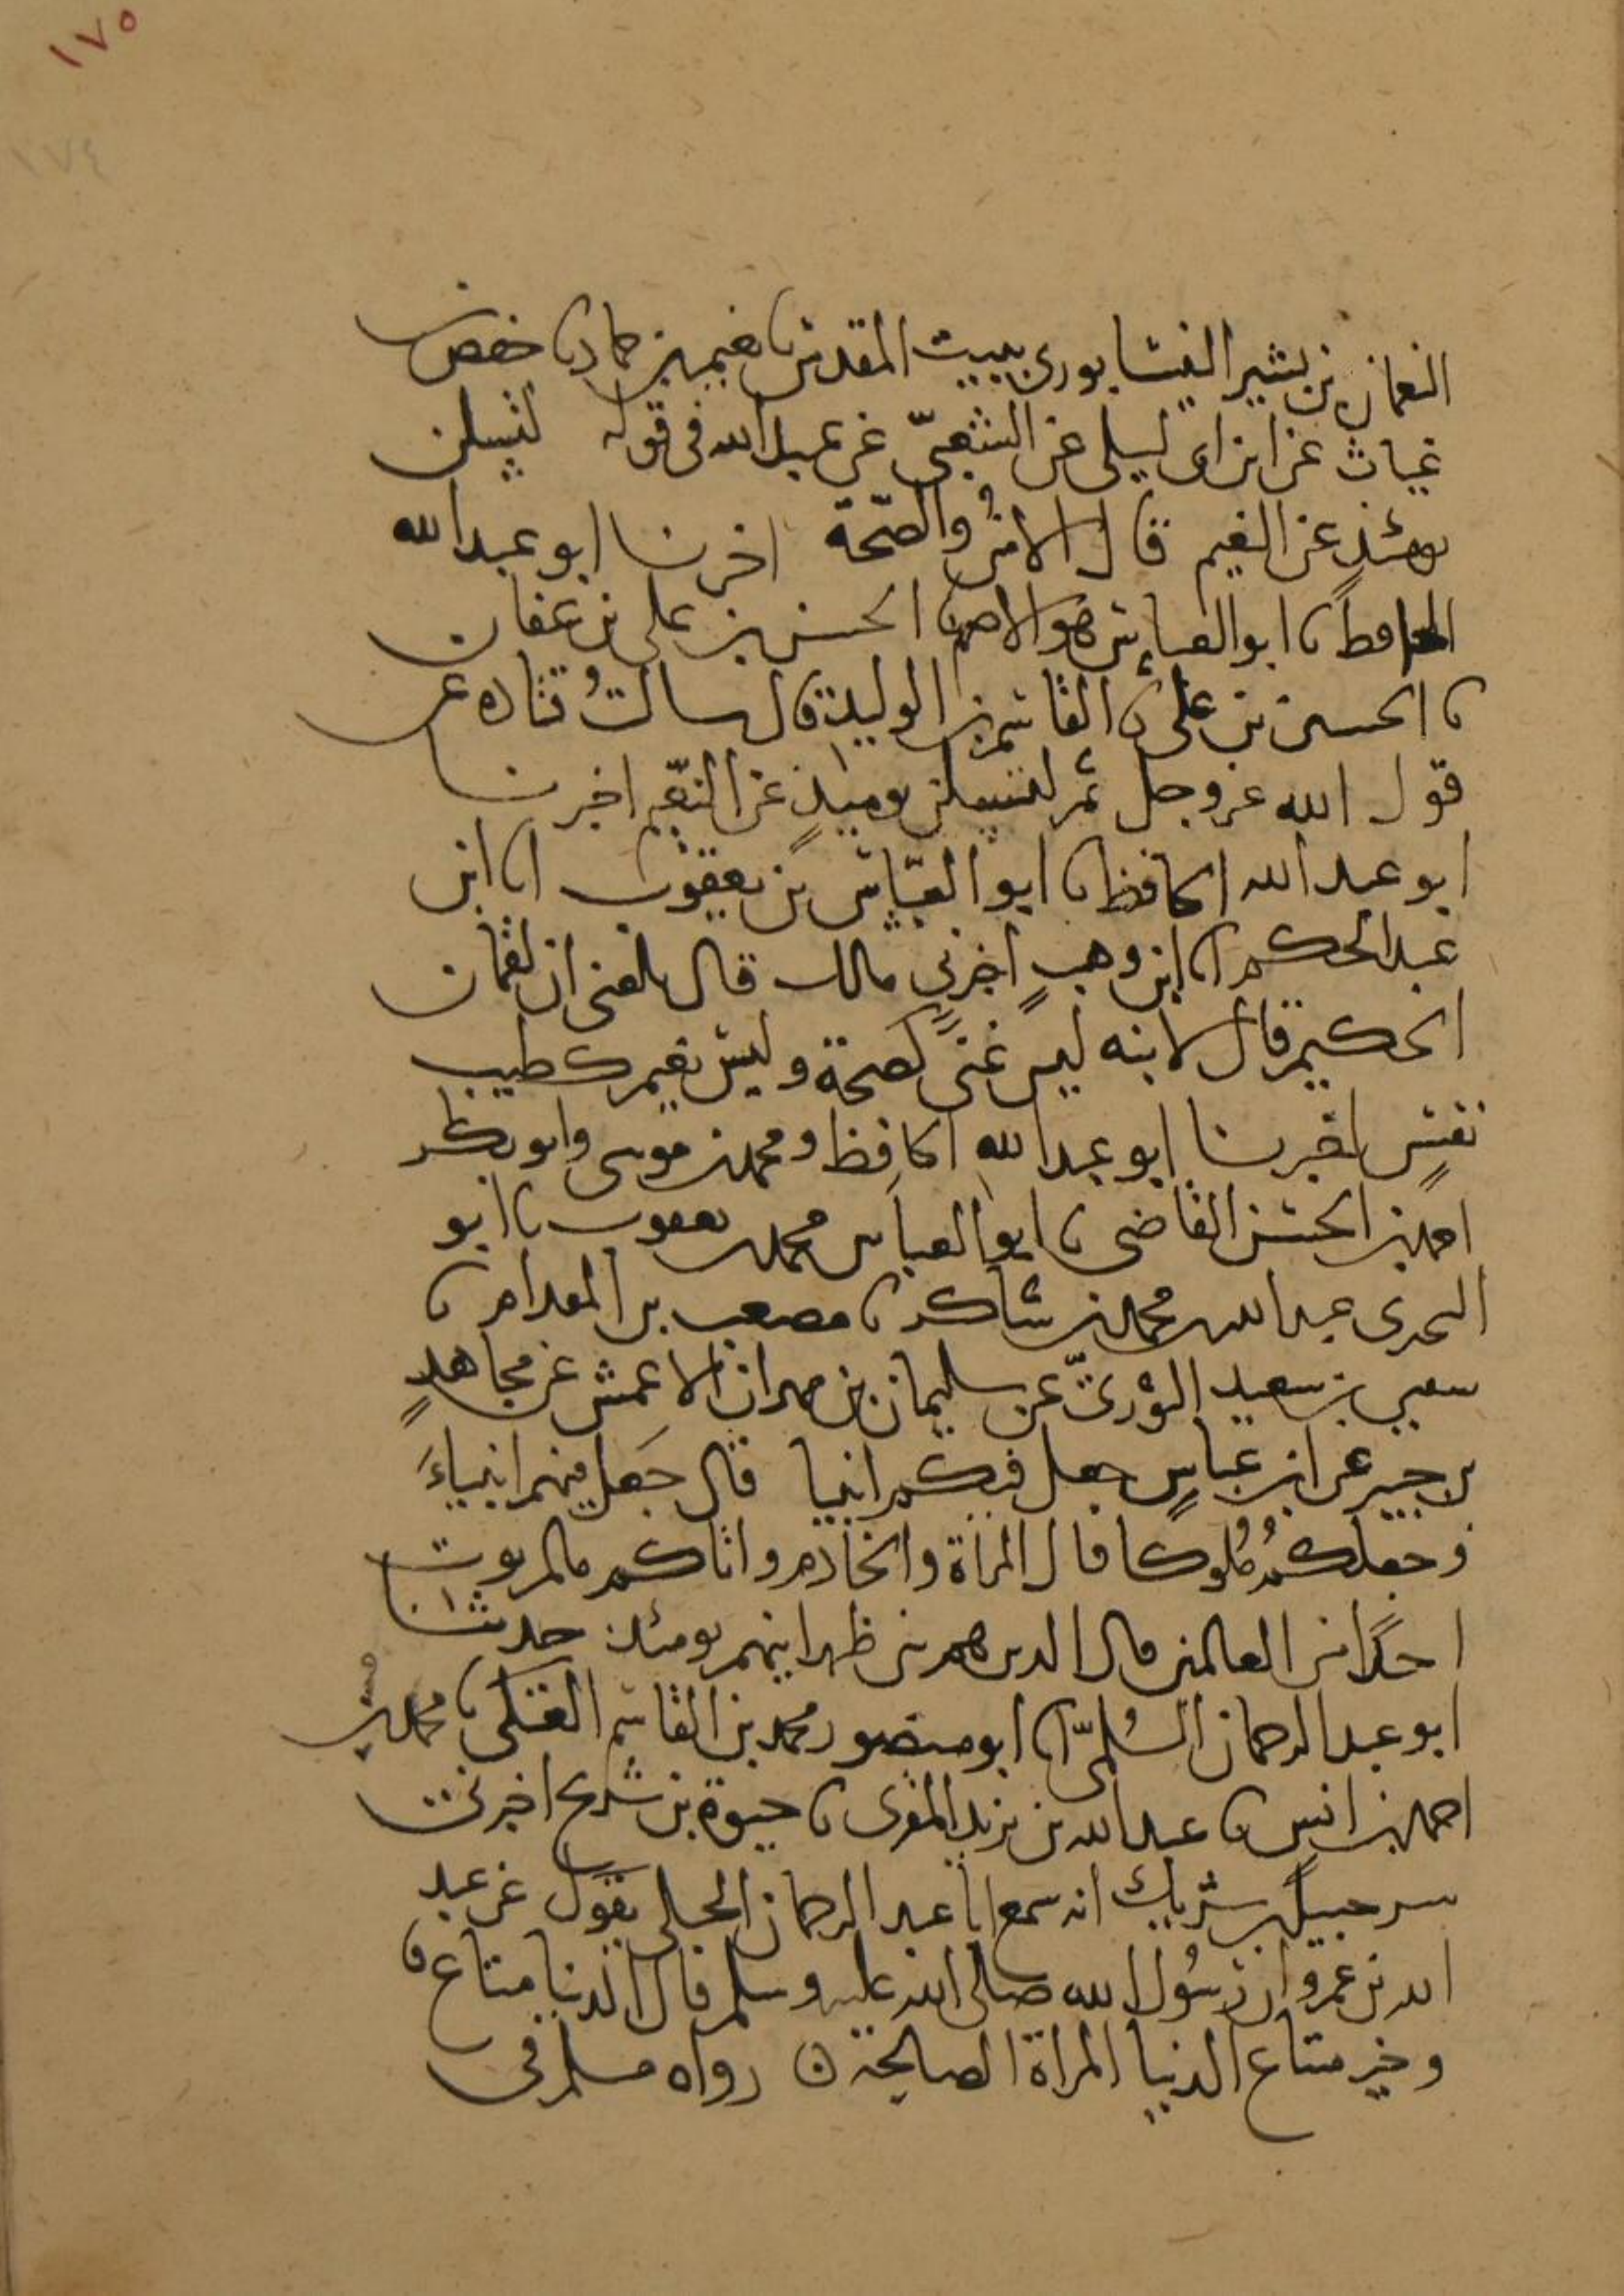 ١٧٥
١٧٤
النعمان بن بشير النيسابوري ببيت المقدس نا نعيم بن حماد نا حفص بن
غياث عن ابن ابي ليلى عن الشعبي عن عبد الله في قوله لتسئلن
يومئذ عن النعيم قال الامن والصحة اخبرنا ابو عبد الله
الحافظ نا ابو العباس هو الاصم نا الحسن بن علي بن عفان
نا الحسين بن علي نا القاسم بن الوليد قال سالت قتاده عن
قول الله عز وجل ثم لتسئلن يوميذ عن النعيم اخبرنا
ابو عبد الله الحافظ نا ابو العباس بن يعقوب انا ابن
عبد الحكم انا ابن وهب اخبرني مالك قال بلغني ان لقمان
الحكيم قال لابنه ليس غنى كصحة وليس نعيم كطيب
نفس اخبرنا ابو عبد الله الحافظ ومحمد بن موسى وابو بكر
احمد بن الحسن القاضي نا ابو العباس محمد بن يعقوب نا ابو
البحتري عبد الله بن محمد بن شاكر نا مصعب بن المقدام نا
سفين بن سعيد الثوري عن سليمان بن مهران الاعمش عن مجاهد
بن جبير عن ابن عباس جعل فيكم انبيا قال جعل منهم انبياء
وجعلكم ملوكا قال المراة والخادم واتاكم ما لم يوت
احدا من العالمين قال الذين هم بين ظهرانيهم يومئذ حدثنا
ابو عبد الرحمان السلمي انا ابو منصور محمد بن القاسم العتكي نا محمد بن
احمد بن انس نا عبد الله بن يزيد المقري نا حيوة بن شريح اخبرني
شرحبيل بن شريك انه سمع ابا عبد الرحمان الحبلي يقول عن عبد
الله بن عمرو ان رسول الله صلى الله عليه وسلم قال الدنيا متاع
وخير متاع الدنيا المراة الصالحة ه رواه مسلم في